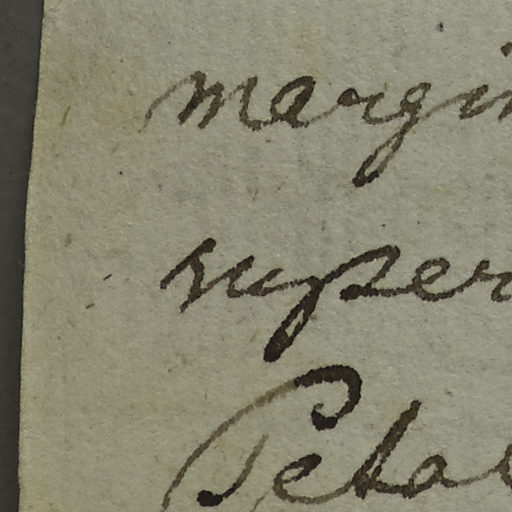 margin
super
Petal